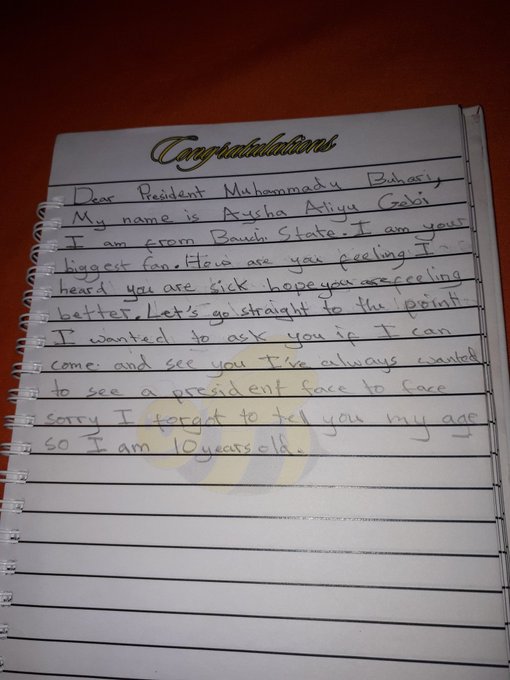 Congratulations
Dear President Muhammadu Buhari,
My name is Aysha Aliyu Gebi
I am from Bauchi State. I am your
biggest fan. How are you feeling I
heard you are sick hope you are feeling
better. Let's go straight to the point.
I wanted to ask you if I can
come and see you I've always wanted
to see a president face to face
sorry I forgot to tell you my age
so I am 10 years old.